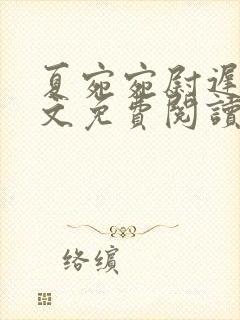 夏宛宛尉遲
文免費閱讀
络缤